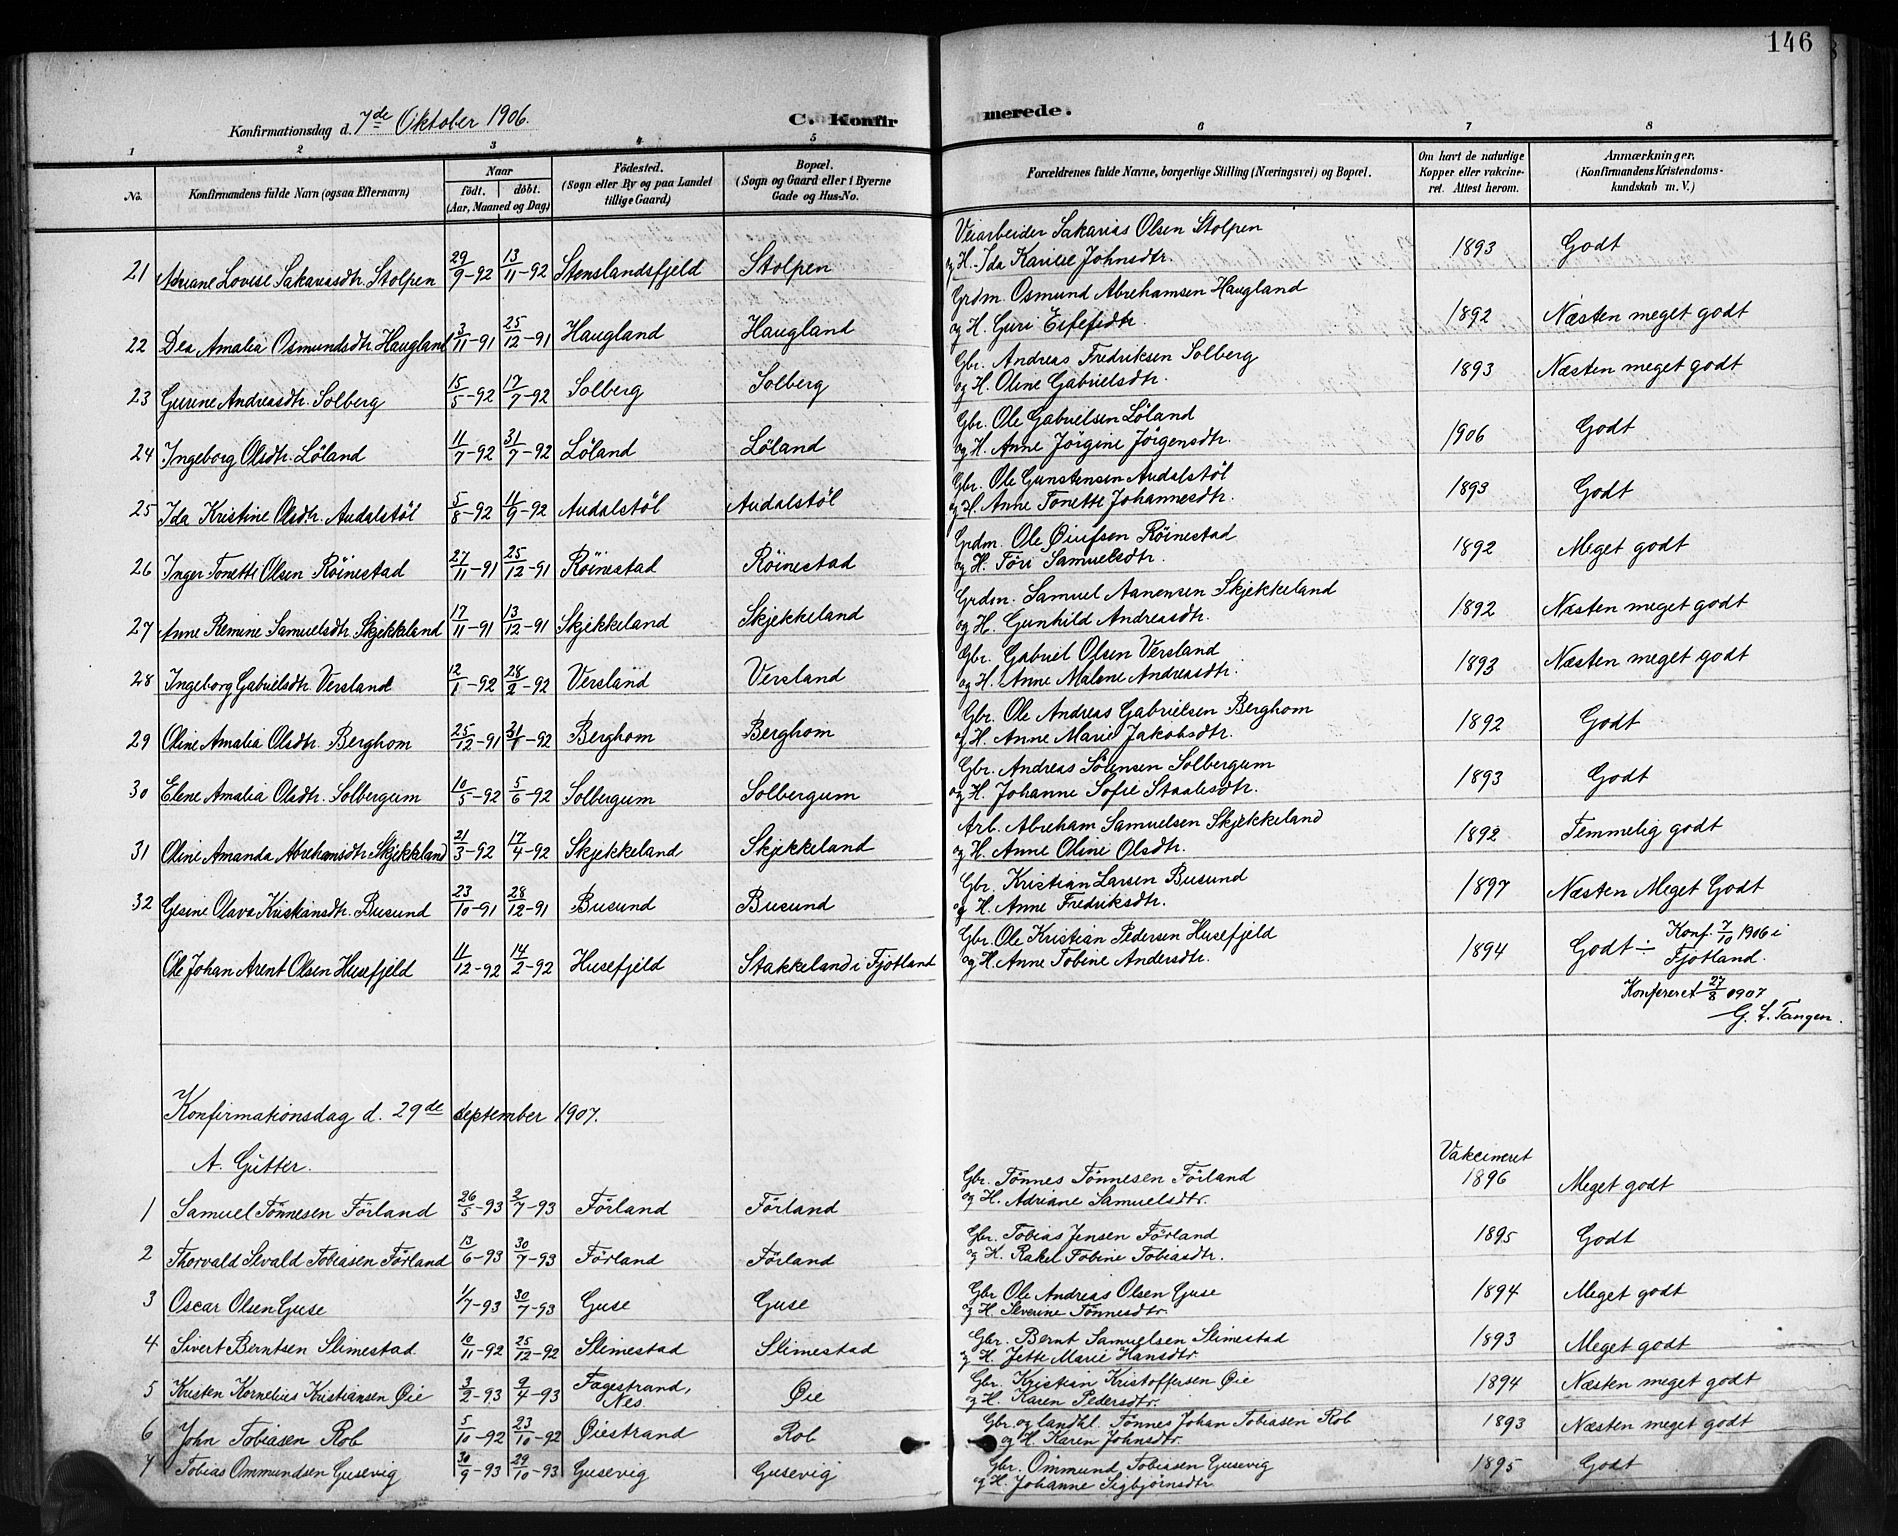 146
Konfirmationsdag d. 7de Oktober 1906.
C. Konfir merede.
1 2 3 4 5 6 7 8
No. Konfirmandens fulde Navn (ogsaa Efternavn) Naar født. døbt. (Aar, Maaned og Dag) Fødested. (Sogn eller By og paa Landet tillige Gaard) Bopæl. (Sogn og Gaard eller i Byerne Gade og Hus-No. Forældrenes fulde Navne, borgerlige Stilling (Næringsvei) og Bopæl. Om havt de naturlige Kopper eller vakcineret. Attest herom. Anmærkninger. (Konfirmandens Kristendomskundskab m. V.)
Veiarbeider Sakarias Olsen Stolpen
21 Adriane Lovise Sakariasdtr. Stolpen 29/9-92 13/11-92 Stenslandsfjeld Stolpen og H. Ida Karine Johnsdtr. 1893 Godt
Grdm. Osmund Abrehamsen Haugland
22 Dea Amalia Osmundsdtr Haugland 3/11-91 25/12-91 Haugland Haugland og H. Guri 1892 Næsten meget godt
Gbr. Andreas Fredriksen Solberg
23 Gurine Andreasdtr. Solberg 15/5-92 17/7-92 Solberg Solberg og H. Oline Gabrielsdtr. 1893 Næsten meget godt
Gbr. Ole Gabrielsen Löland
24 Ingeborg Olsdtr. Löland 11/7-92 31/7-92 Löland Löland og H. Anne Jörgine Jörgensdtr. 1906 Godt
Gbr. Ole Gunstensen Audalstöl
25 Ida Kristine Olsdtr. Audalstöl 5/8-92 11/9-92 Audalstöl Audalstöl og H. Anne Tonette Johannesdtr. 1893 Godt
Grdm. Ole Øiufsen Röinestad
26 Inger Tonette Olsen Röinestad 27/11-91 25/12-91 Röinestad Röinestad og H. Töri Samuelsdtr. 1892 Meget godt
Grdm. Samuel Aanensen Skjekkeland
27 Anne Remine Samuelsdtr. Skjekkeland 17/11-91 13/12-91 Skjekkeland Skjekkeland og H. Gunhild Andreasdtr. 1892 Næsten meget godt
Gbr. Gabriel Olsen Versland
28 Ingeborg Gabrielsdtr Versland 12/1-92 28/2-92 Versland Versland og H. Anne Malene Andreasdtr. 1893 Næsten meget godt
Gbr. Ole Andreas Gabrielsen Berghom
29 Oline Amalia Olsdtr. Berghom 25/12-91 31/1-92 Berghom Berghom og H. Anne Marie Jakobsdtr. 1892 Godt
Gbr. Andreas Sörensen Solbergum
30 Elene Amalia Olsdtr. Solbergum 10/5-92 5/6-92 Solbergum Solbergum og H. Johanne Sofie Staalesdtr. 1893 Godt
Arb. Abreham Samuelsen Skjekkeland
31 Oline Amanda Abrehamsdtr Skjekkeland 21/3-92 17/4-92 Skjekkeland Skjekkeland og H. Anne Oline Olsdtr. 1892 Temmelig godt
Gbr. Kristian Larsen Busund
32 Gesine Olava Kristiansdtr. Busund 23/10-91 28/12-91 Busund Busund og H. Anne Fredriksdtr. 1897 Næsten Meget Godt
Gbr. Ole Kristian Pedersen Husefjeld
Ole Johan Arent Olsen Husefjeld 11/12-92 14/2-92 Husefjeld Stakkeland i Fjotland og H. Anne Tobine Andersdtr. 1894 Godt ÷ Konf. 7/10 1906 i Fjotland.
Konfereret 27/8 1907
G. L. Tangen.
Konfirmationsdag d. 29de september 1907.
A. Gutter.
Vakcineret
Gbr. Tönnes Tönnesen Förland
1 Samuel Tönnesen Förland 26/5-93 2/7-93 Förland Förland og H. Adriane Samuelsdtr. 1896 Meget godt
Gbr. Tobias Jensen Förland
2 Thorvald Sevald Tobiasen Förland 13/6-93 30/7-93 Förland Förland og H. Rakel Tobine Tobiasdtr. 1895 Godt
Gbr Ole Andreas Olsen Guse
3 Oscar Olsen Guse 1/7-93 30/7-93 Guse Guse og H. Severine Tönnesdtr. 1894 Meget godt
Gbr. Bernt Samuelsen Slimestad
4 Sivert Berntsen Slimestad 10/11-92 25/12-92 Slimestad Slimestad og H. Jette Marie Hansdtr 1893 Meget godt
Gbr. Kristian Kristoffersen Øie
5 Kristen Kornelius Kristiansen Øie 3/2-93 9/4-93 Fagestrand, Nes. Øie og H. Karen Pedersdtr. 1894 Næsten meget godt
Gbr. og landhl. Tönnes Johan Tobiasen Rob
6 John Tobiasen Rob 5/10-92 23/10-92 Øiestrand Rob og H. Karen Johnsdtr. 1893 Næsten meget godt
Gbr. Ommund Tobiasen Gusevig
7 Tobias Ommundsen Gusevig 30/9-93 29/10-93 Gusevig Gusevig og H. Johanne Sigbjörnsdtr 1895 Godt